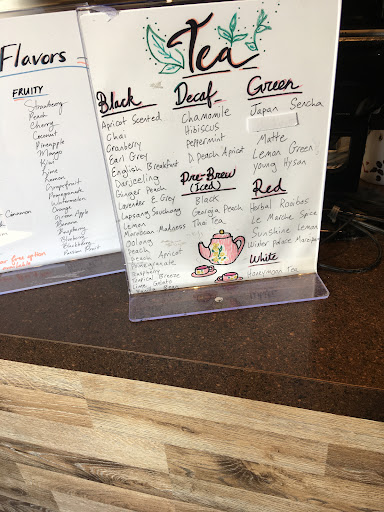 Flavors
FRUITY
Strawberry
Peach
Cherry
Coconut
Pineapple
Mango
Kiwi
Lime
Lemon
Grapefruit
Pomegranate
Watermelon
Orange
Green Apple
Banana
Raspberry
Blueberry
Blackberry
Passion Fruit
Cinnamon
Tea
Black
Apricot Scented
Chai
Cranberry
Earl Grey
English Breakfast
Darjeeling
Ginger Peach
Lavender E. Grey
Lapsang Souchong
Lemon
Moroccan Madness
Oolong
Peach
Peach Apricot
Pomegranate
Raspberry
Tropical Breeze
Decaf
Chamomile
Hibiscus
Peppermint
D. Peach Apricot
Pre-Brew
(Iced)
Black
Georgia Peach
Thai Tea
Green
Japan Sencha
Matte
Lemon Green
Young Hyson
Red
Herbal Rooibos
Le Marche Spice
Sunshine Lemon
Winter Palace Marzipan
White
Honeymoon Tea